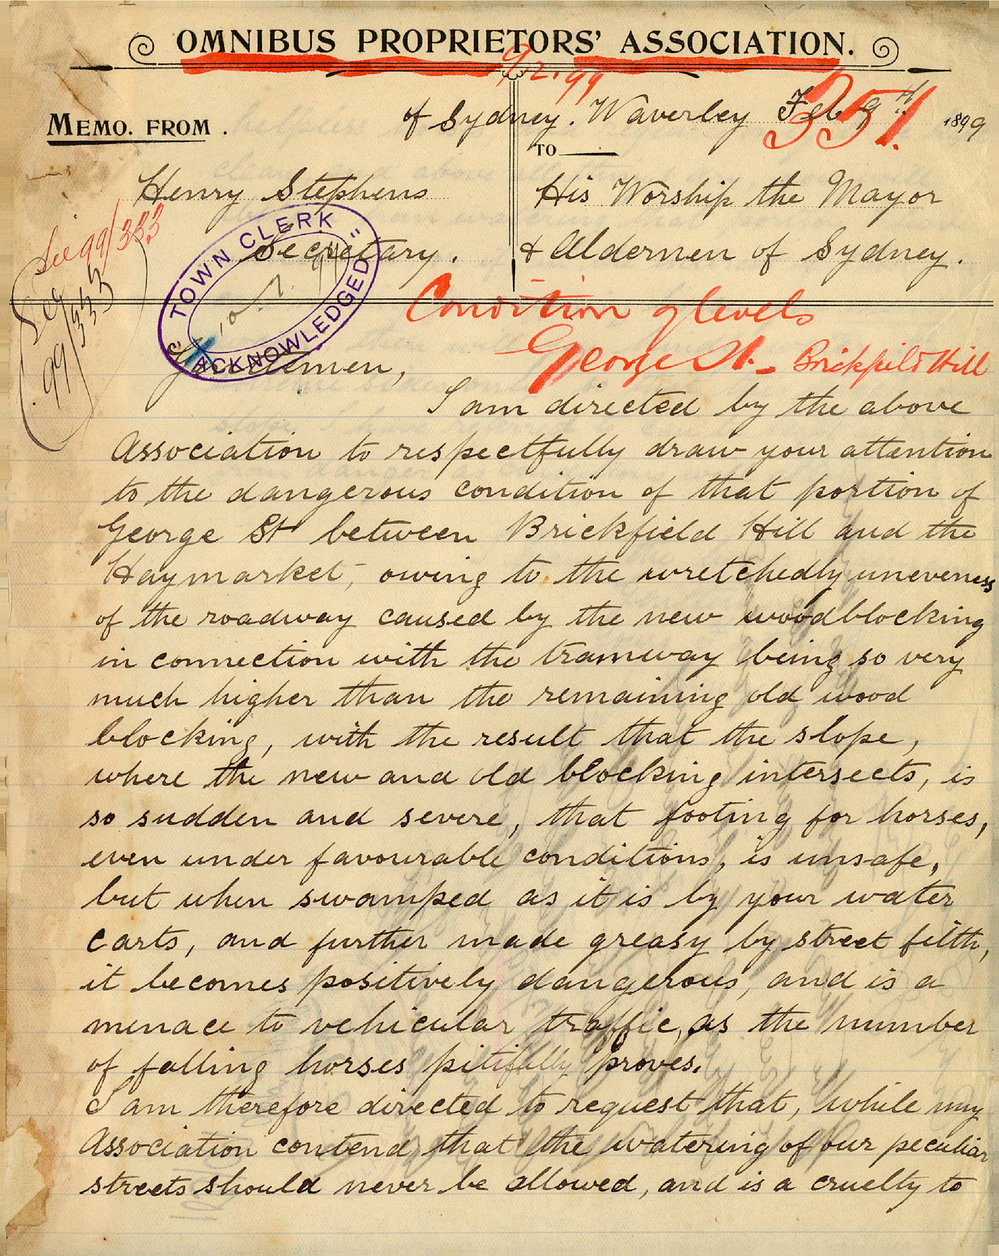 OMNIBUS PROPRIETORS' ASSOCIATION.
9/2.99
351.
of Sydney. Waverley Feb 9th 1899
MEMO. FROM.
TO
Henry Stephens
Secretary.
His Worship the Mayor
& Aldermen of Sydney.
See 99/333
99/333
TOWN CLERK
ACKNOWLEDGED
Condition of levels
George St. Brickfield Hill
Gentlemen,
I am directed by the above
Association to respectfully draw your attention
to the dangerous condition of that portion of
George St between Brickfield Hill and the
Haymarket, owing to the wretchedly uneveness
of the roadway caused by the new woodblocking
in connection with the tramway being so very
much higher than the remaining old wood
blocking, with the result that the slope,
where the new and old blocking intersects, is
so sudden and severe, that footing for horses,
even under favourable conditions, is unsafe,
but when swamped as it is by your water
carts, and further made greasy by street filth,
it becomes positively dangerous, and is a
menace to vehicular traffic, as the number
of falling horses pitifully proves.
I am therefore directed to request that, while my
Association contend that the watering of our peculiar
streets should never be allowed, and is a cruelty to